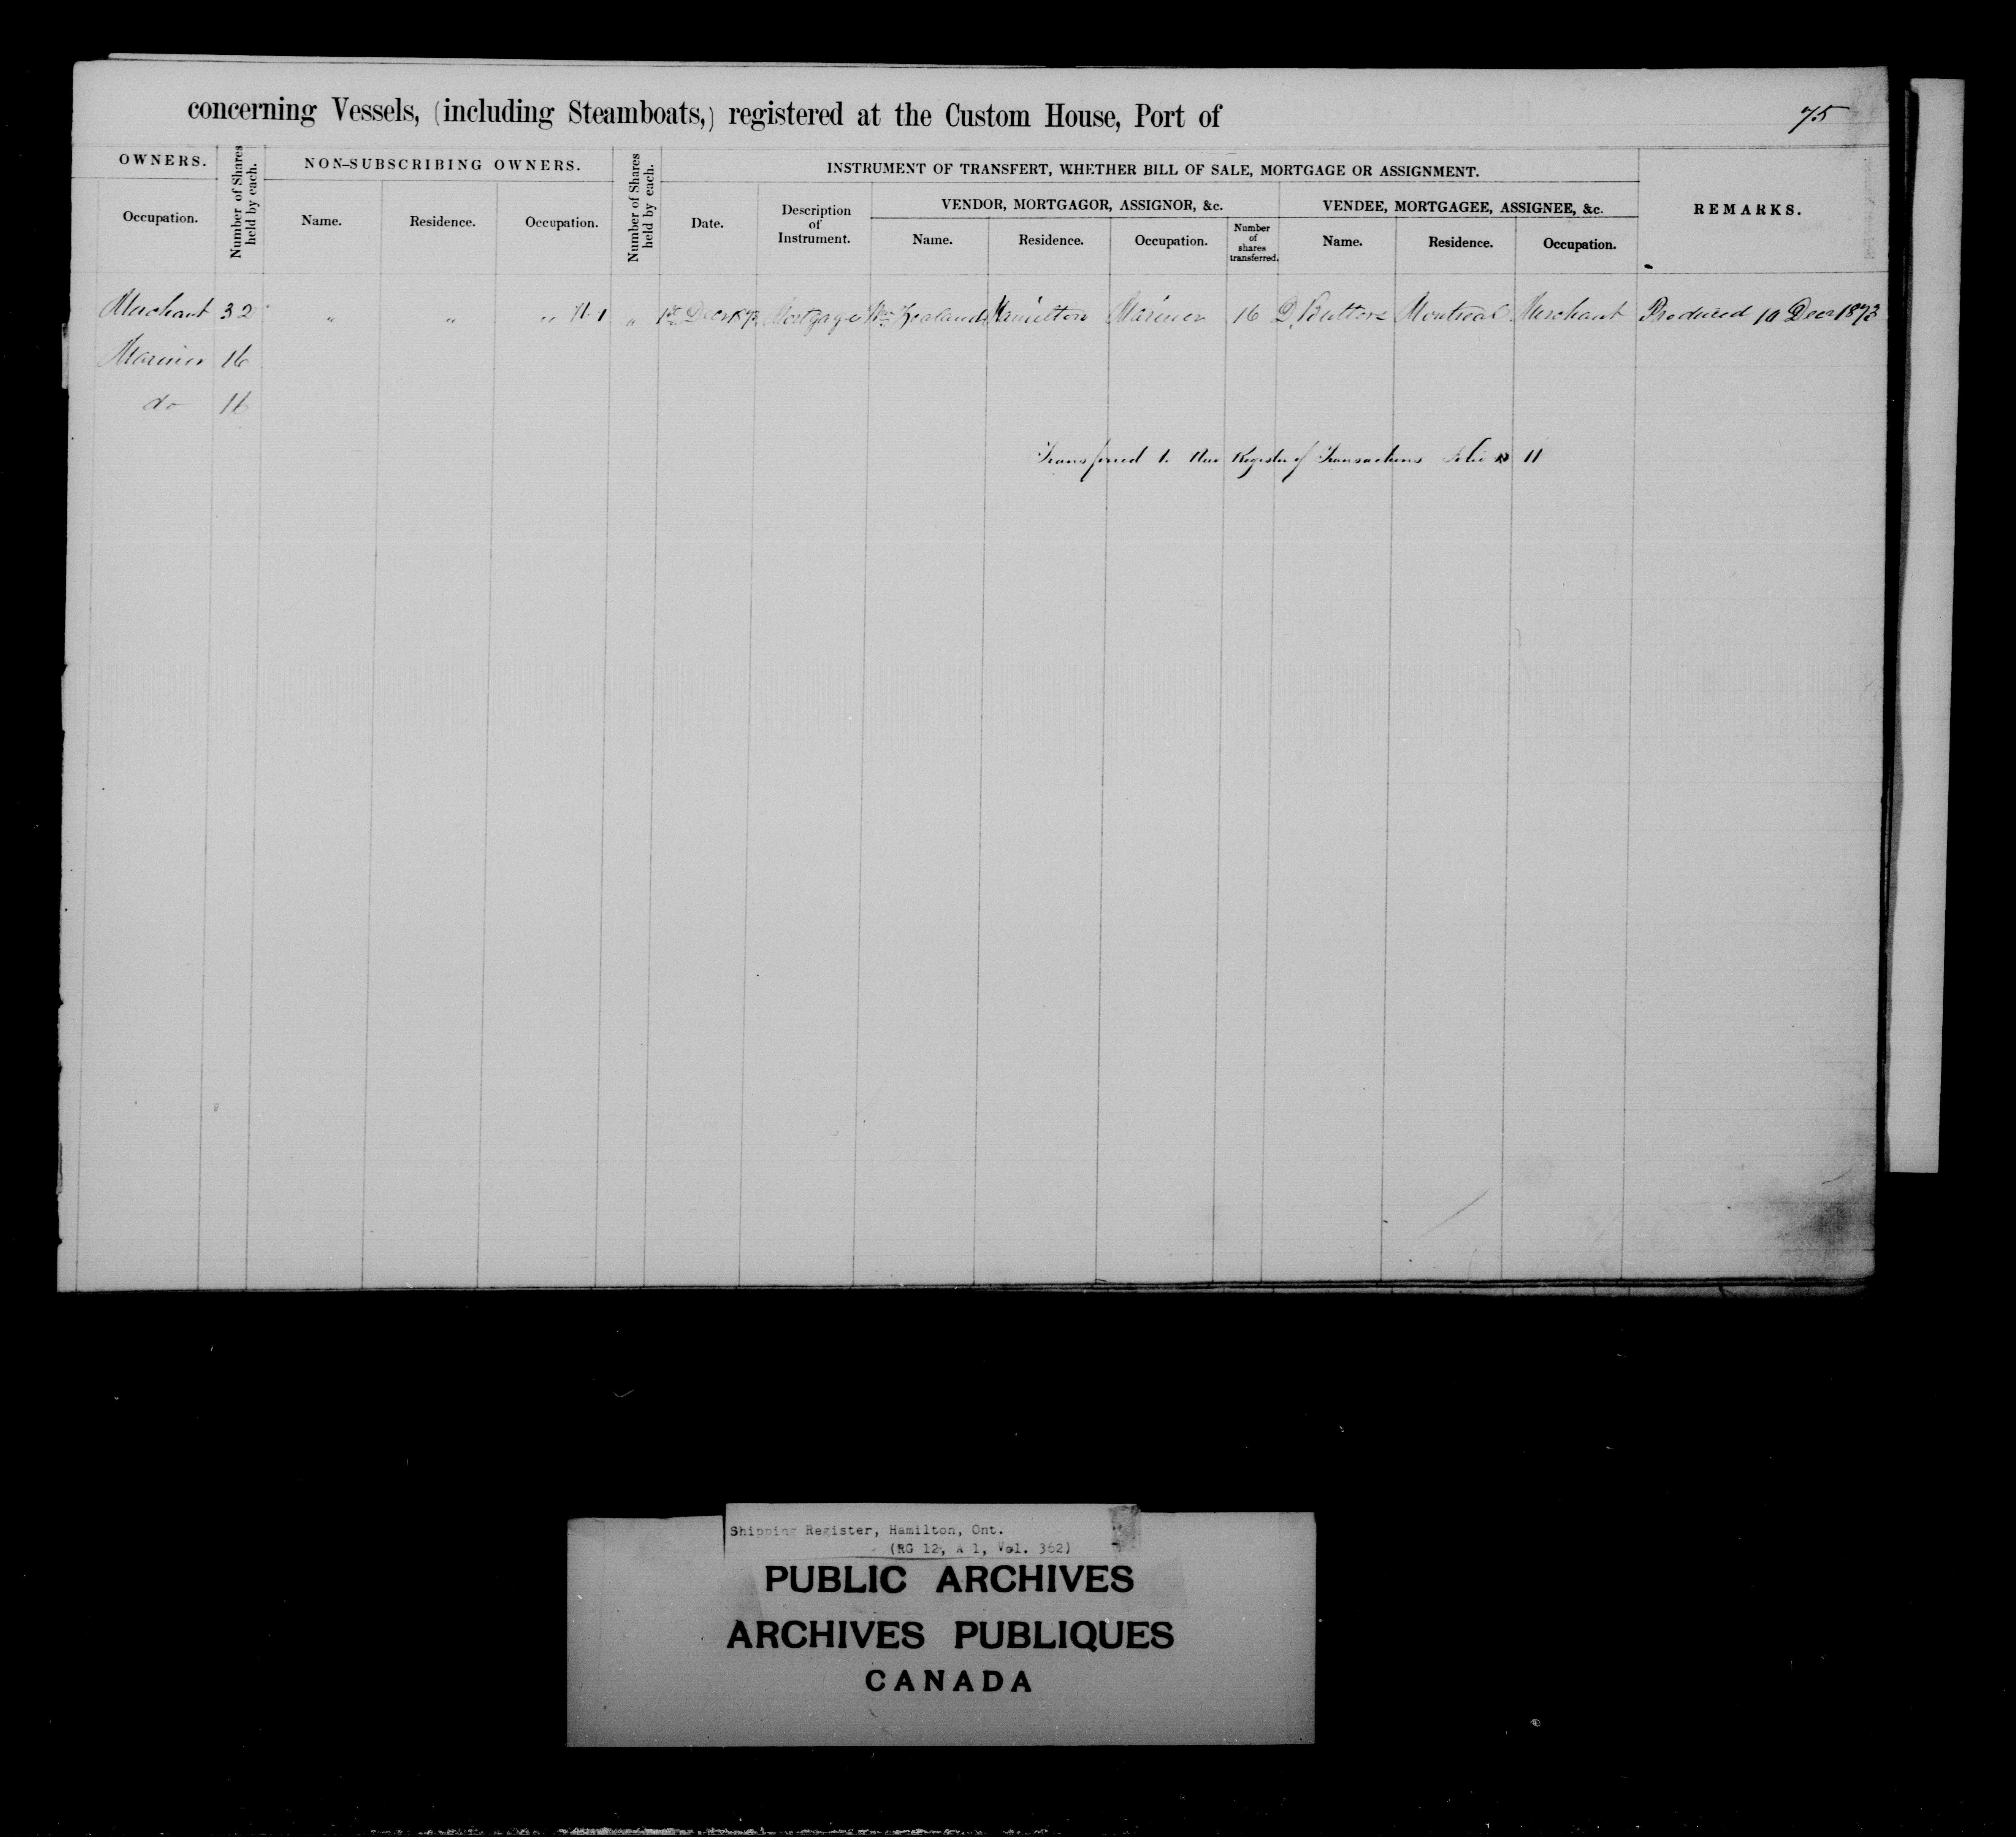 concerning Vessels, (including Steamboats,) registered at the Custom House, Port of
75
OWNERS.
Number of Shares held by each.
NON-SUBSCRIBING OWNERS.
Number of Shares held by each.
INSTRUMENT OF TRANSFERT, WHETHER BILL OF SALE, MORTGAGE OR ASSIGNMENT.
REMARKS.
VENDOR, MORTGAGOR, ASSIGNOR, &c.
VENDEE, MORTGAGEE, ASSIGNEE, &c.
Occupation. Name. Residence. Occupation. Date. Description of Instrument. Name. Residence. Occupation. Number of shares transferred. Name. Residence. Occupation.
Merchant 32 " " " " 1st Decr Mortgage Wm Zealand Hamilton Mariner 16 D. Butters Montreal Merchant Produced 10 Decr 1873
Mariner 16
do 16
Transferred to New Register of Transactions Folio 11
Shipping Register, Hamilton, Ont.
(RG 12, A 1, Vol. 362)
PUBLIC ARCHIVES
ARCHIVES PUBLIQUES
CANADA